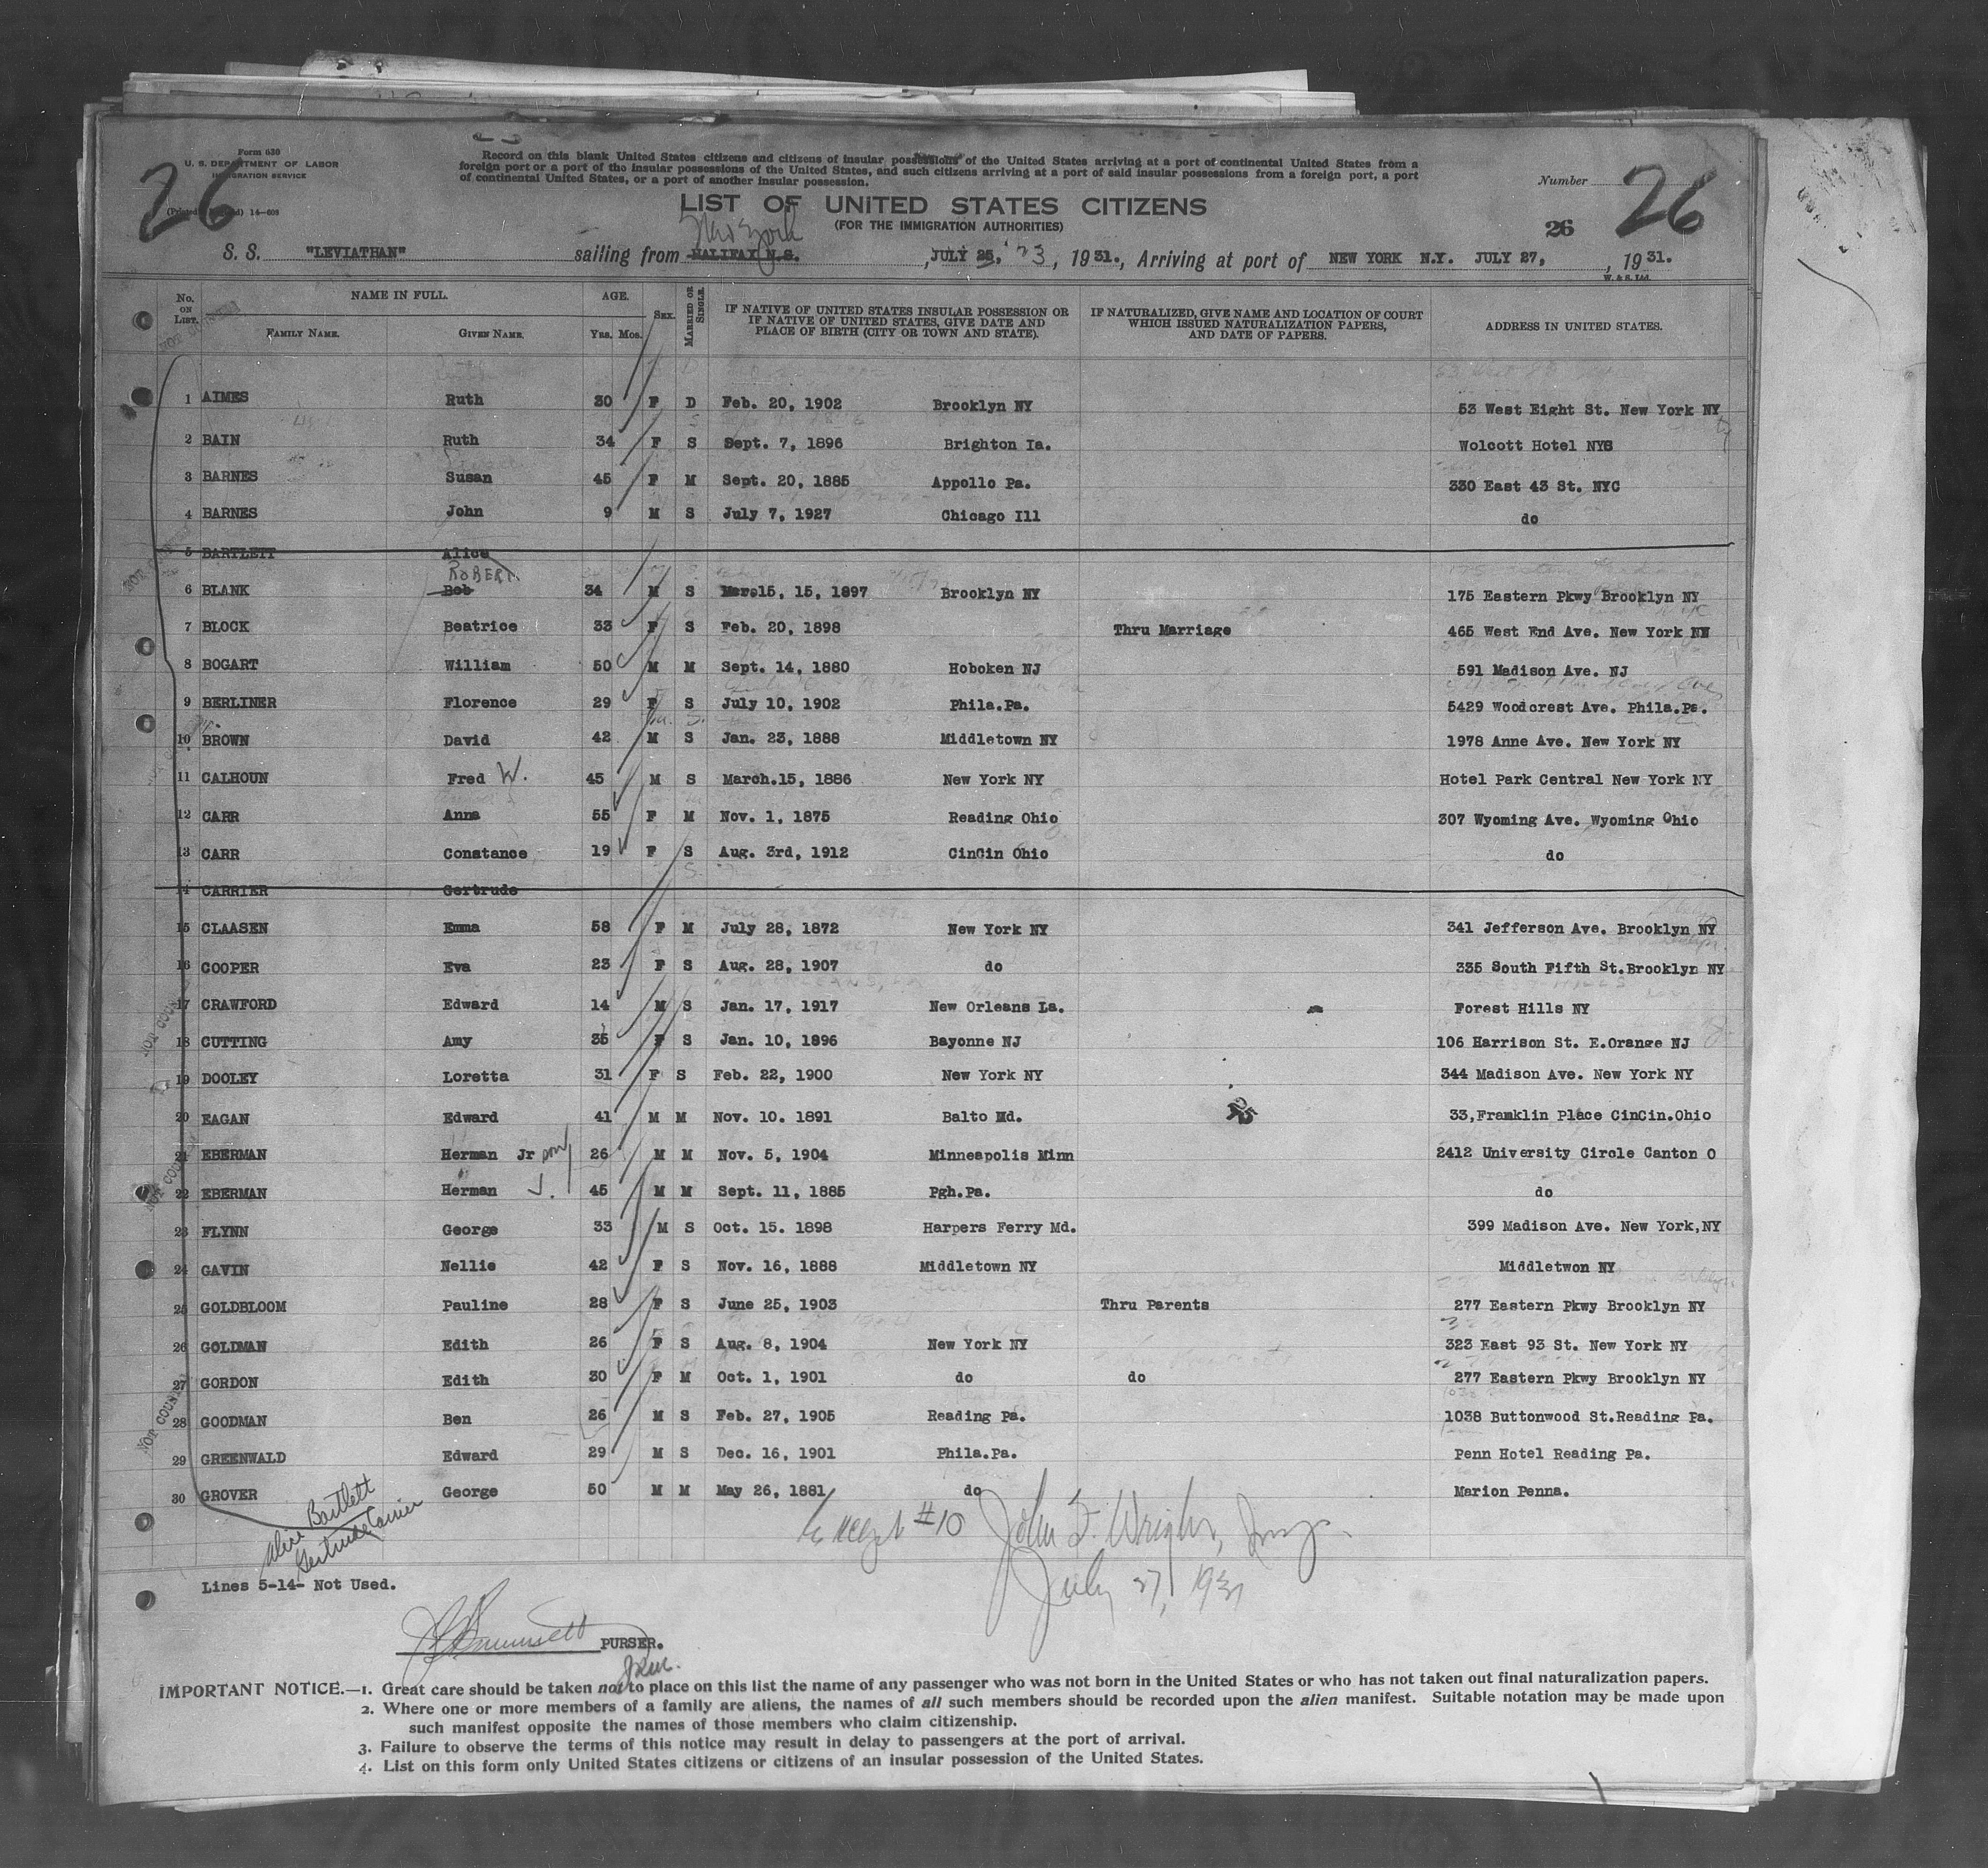 Form 630
U. S. DEPARTMENT OF LABOR
IMMIGRATION SERVICE
26
14—608
Record on this blank United States citizens and citizens of insular possessions of the United States arriving at a port of continental United States from a
foreign port or a port of the insular possessions of the United States, and such citizens arriving at a port of said insular possessions from a foreign port, a port
of continental United States, or a port of another insular possession.
Number 26
LIST OF UNITED STATES CITIZENS
(FOR THE IMMIGRATION AUTHORITIES)
26
New York
S. S. "LEVIATHAN" sailing from HALIFAX N.S. , JULY 25, '23, 1931., Arriving at port of NEW YORK N.Y. JULY 27, , 1931.
W. & S. Ltd.
No. ON LIST. NAME IN FULL. FAMILY NAME. GIVEN NAME. AGE. YRS. MOS. SEX. MARRIED OR SINGLE. IF NATIVE OF UNITED STATES INSULAR POSSESSION OR IF NATIVE OF UNITED STATES, GIVE DATE AND PLACE OF BIRTH (CITY OR TOWN AND STATE). IF NATURALIZED, GIVE NAME AND LOCATION OF COURT WHICH ISSUED NATURALIZATION PAPERS, AND DATE OF PAPERS. ADDRESS IN UNITED STATES.
1 AIMES Ruth 30 F D Feb. 20, 1902 Brooklyn NY 53 West Eight St. New York NY
2 BAIN Ruth 34 F S Sept. 7, 1896 Brighton Ia. Wolcott Hotel NYS
3 BARNES Susan 45 F M Sept. 20, 1885 Appollo Pa. 330 East 43 St. NYC
4 BARNES John 9 M S July 7, 1927 Chicago Ill do
5 BARTLETT Alice
ROBERT
6 BLANK Bob 34 M S 15, 1897 Brooklyn NY 175 Eastern Pkwy Brooklyn NY
7 BLOCK Beatrice 33 F S Feb. 20, 1898 Thru Marriage 465 West End Ave. New York NY
8 BOGART William 50 M M Sept. 14, 1880 Hoboken NJ 591 Madison Ave. NJ
9 BERLINER Florence 29 F S July 10, 1902 Phila.Pa. 5429 Woodcrest Ave. Phila.Pa.
10 BROWN David 42 M S Jan. 23, 1888 Middletown NY 1978 Anne Ave. New York NY
11 CALHOUN Fred W. 45 M S March.15, 1886 New York NY Hotel Park Central New York NY
12 CARR Anna 55 F M Nov. 1, 1875 Reading Ohio 307 Wyoming Ave. Wyoming Ohio
13 CARR Constance 19 F S Aug. 3rd, 1912 CinCin Ohio do
14 CARRIER Gertrude
15 CLAASEN Emma 58 F M July 28, 1872 New York NY 341 Jefferson Ave. Brooklyn NY
16 COOPER Eva 23 F S Aug. 28, 1907 do 335 South Fifth St.Brooklyn NY
17 CRAWFORD Edward 14 M S Jan. 17, 1917 New Orleans La. Forest Hills NY
18 CUTTING Amy 35 F S Jan. 10, 1896 Bayonne NJ 106 Harrison St. E.Orange NJ
19 DOOLEY Loretta 31 F S Feb. 22, 1900 New York NY 344 Madison Ave. New York NY
20 EAGAN Edward 41 M M Nov. 10. 1891 Balto Md. 33,Framklin Place CinCin.Ohio
21 EBERMAN Herman Jr 26 M M Nov. 5, 1904 Minneapolis Minn 2412 University Circle Canton O
22 EBERMAN Herman J. 45 M M Sept. 11, 1885 Pgh.Pa. do
23 FLYNN George 33 M S Oct. 15. 1898 Harpers Ferry Md. 399 Madison Ave. New York,NY
24 GAVIN Nellie 42 F S Nov. 16, 1888 Middletown NY Middletwon NY
25 GOLDBLOOM Pauline 28 F S June 25, 1903 Thru Parents 277 Eastern Pkwy Brooklyn NY
26 GOLDMAN Edith 26 F S Aug. 8, 1904 New York NY 323 East 93 St. New York NY
27 GORDON Edith 30 F M Oct. 1, 1901 do do 277 Eastern Pkwy Brooklyn NY
28 GOODMAN Ben 26 M S Feb. 27, 1905 Reading Pa. 1038 Buttonwood St.Reading Pa.
29 GREENWALD Edward 29 M S Dec. 16, 1901 Phila.Pa. Penn Hotel Reading Pa.
30 GROVER George 50 M M May 26, 1881 do Marion Penna.
Alice Bartlett
Gertrude Carrier
Except #10 John F. Wright, Insp.
July 27, 1931
Lines 5-14- Not Used.
PURSER.
IMPORTANT NOTICE.—1. Great care should be taken not to place on this list the name of any passenger who was not born in the United States or who has not taken out final naturalization papers.
2. Where one or more members of a family are aliens, the names of all such members should be recorded upon the alien manifest. Suitable notation may be made upon
such manifest opposite the names of those members who claim citizenship.
3. Failure to observe the terms of this notice may result in delay to passengers at the port of arrival.
4. List on this form only United States citizens or citizens of an insular possession of the United States.